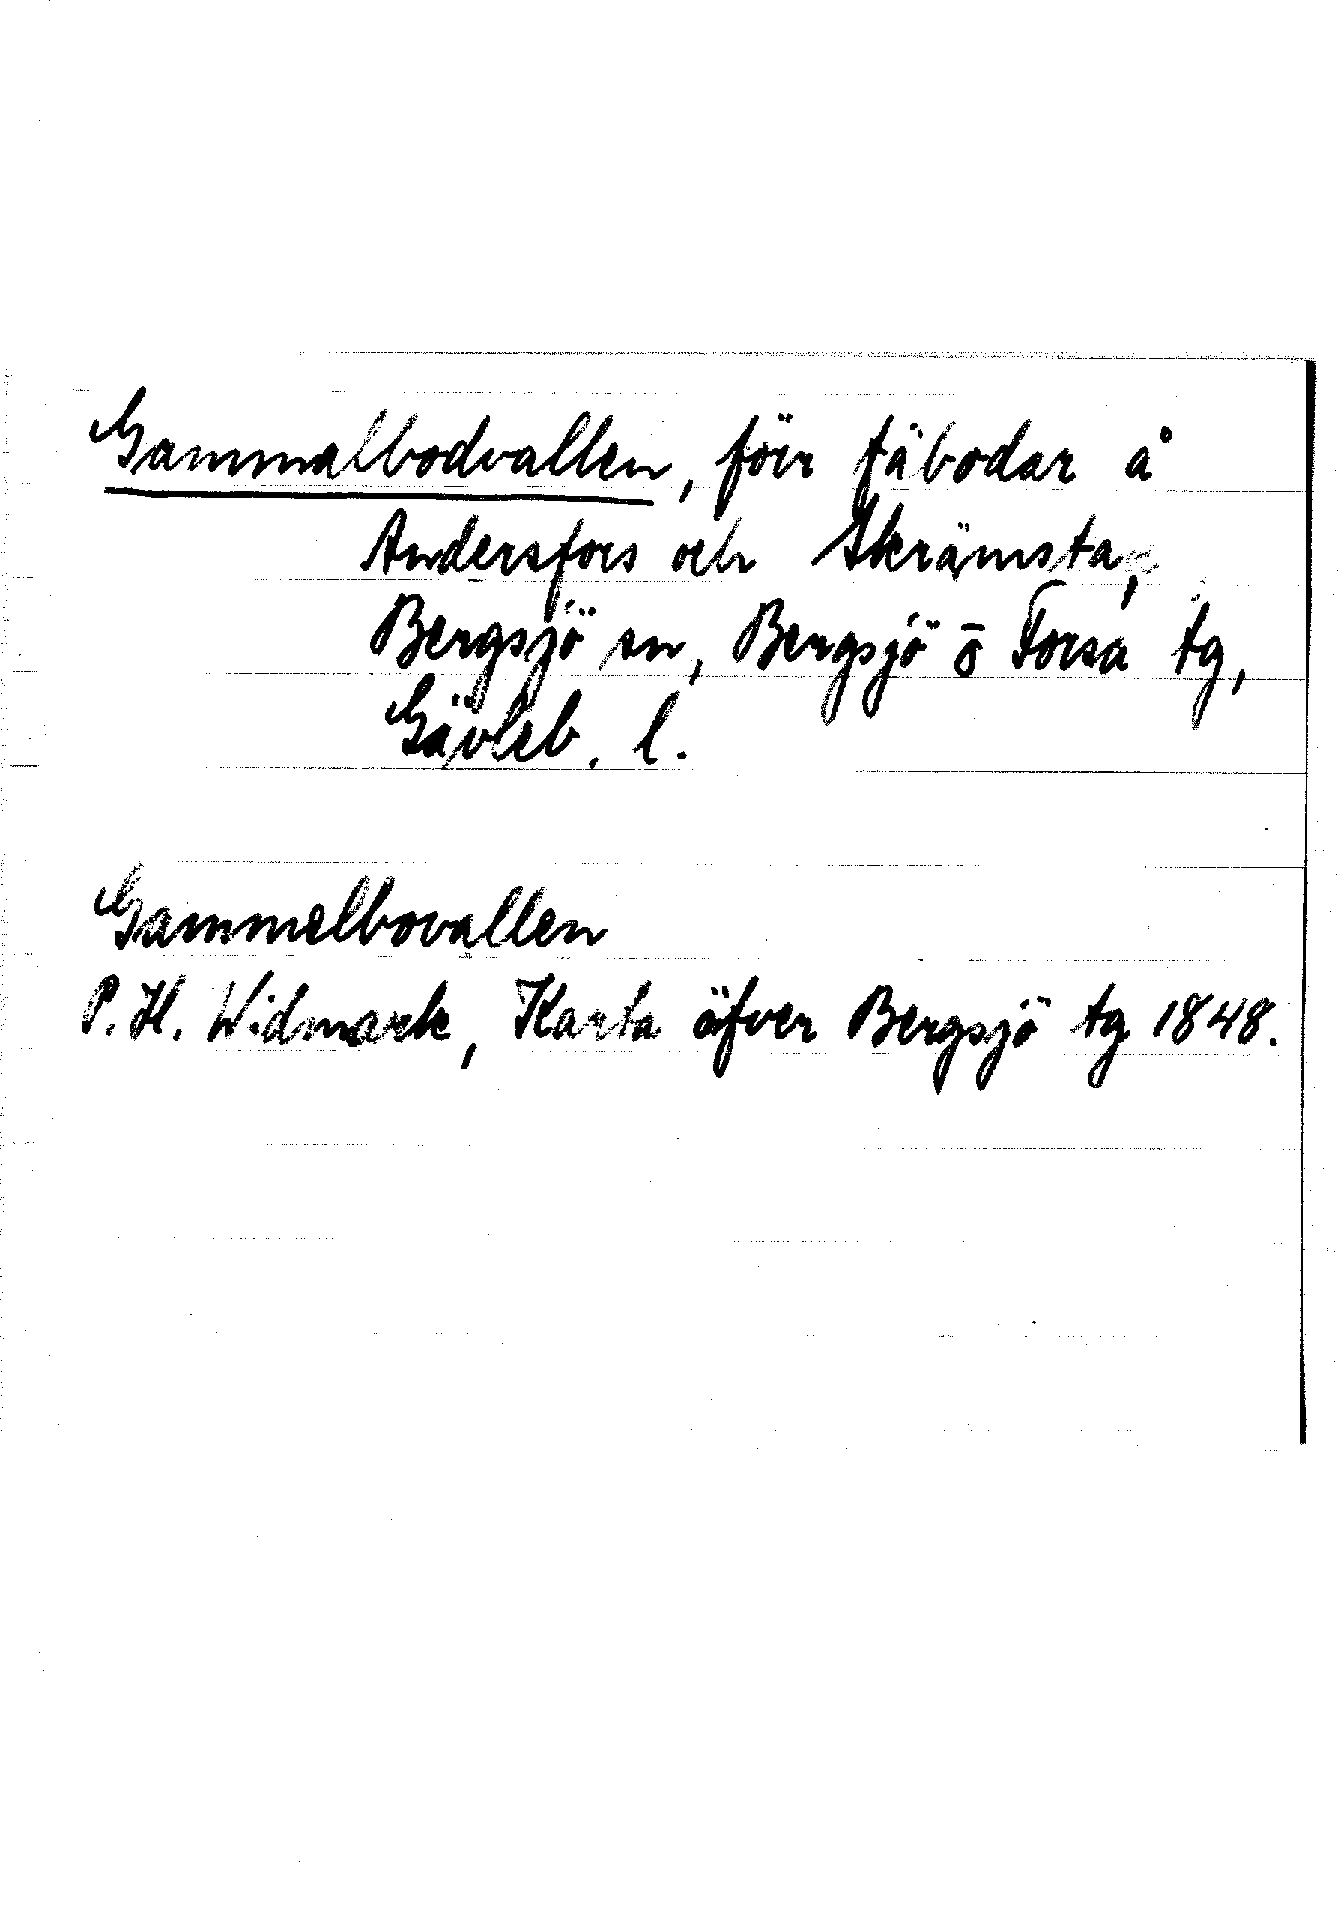 Gammalbodvallen, förr fäbodar å
Andersfors och Skrämsta,
Bergsjö sn, Bergsjö o Forsa tg,
Gävleb. l.
Gammelbovallen
P. H. Widmark, Karta öfver Bergsjö tg 1848.